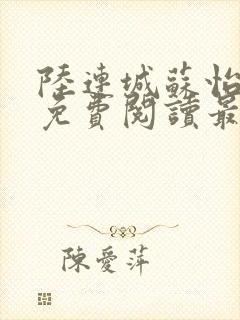 陸連城蘇怡
免費閱讀最
陳愛萍